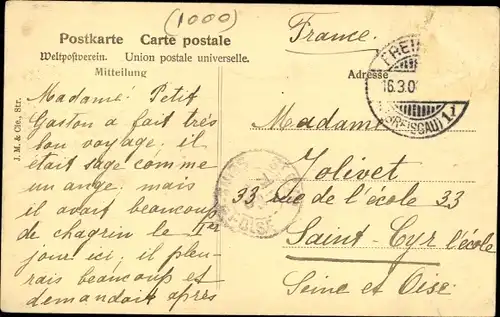 (1000)
Postkarte Carte postale
Weltpostverein. Union postale universelle.
Mitteilung
Adresse
France.
16.3.0
(BREISGAU)
J. M. & Cie., Str.
Madame! Petit
Gaston a fait très
bon voyage; il
était sage comme
un ange; mais
il avait beaucoup
de chagrin le Ier
jour ici; il pleu-
rais beaucoup et
demandait après
Madame
Jolivet
33 rue de l'école 33
Saint-Cyr l'école
Seine et Oise.